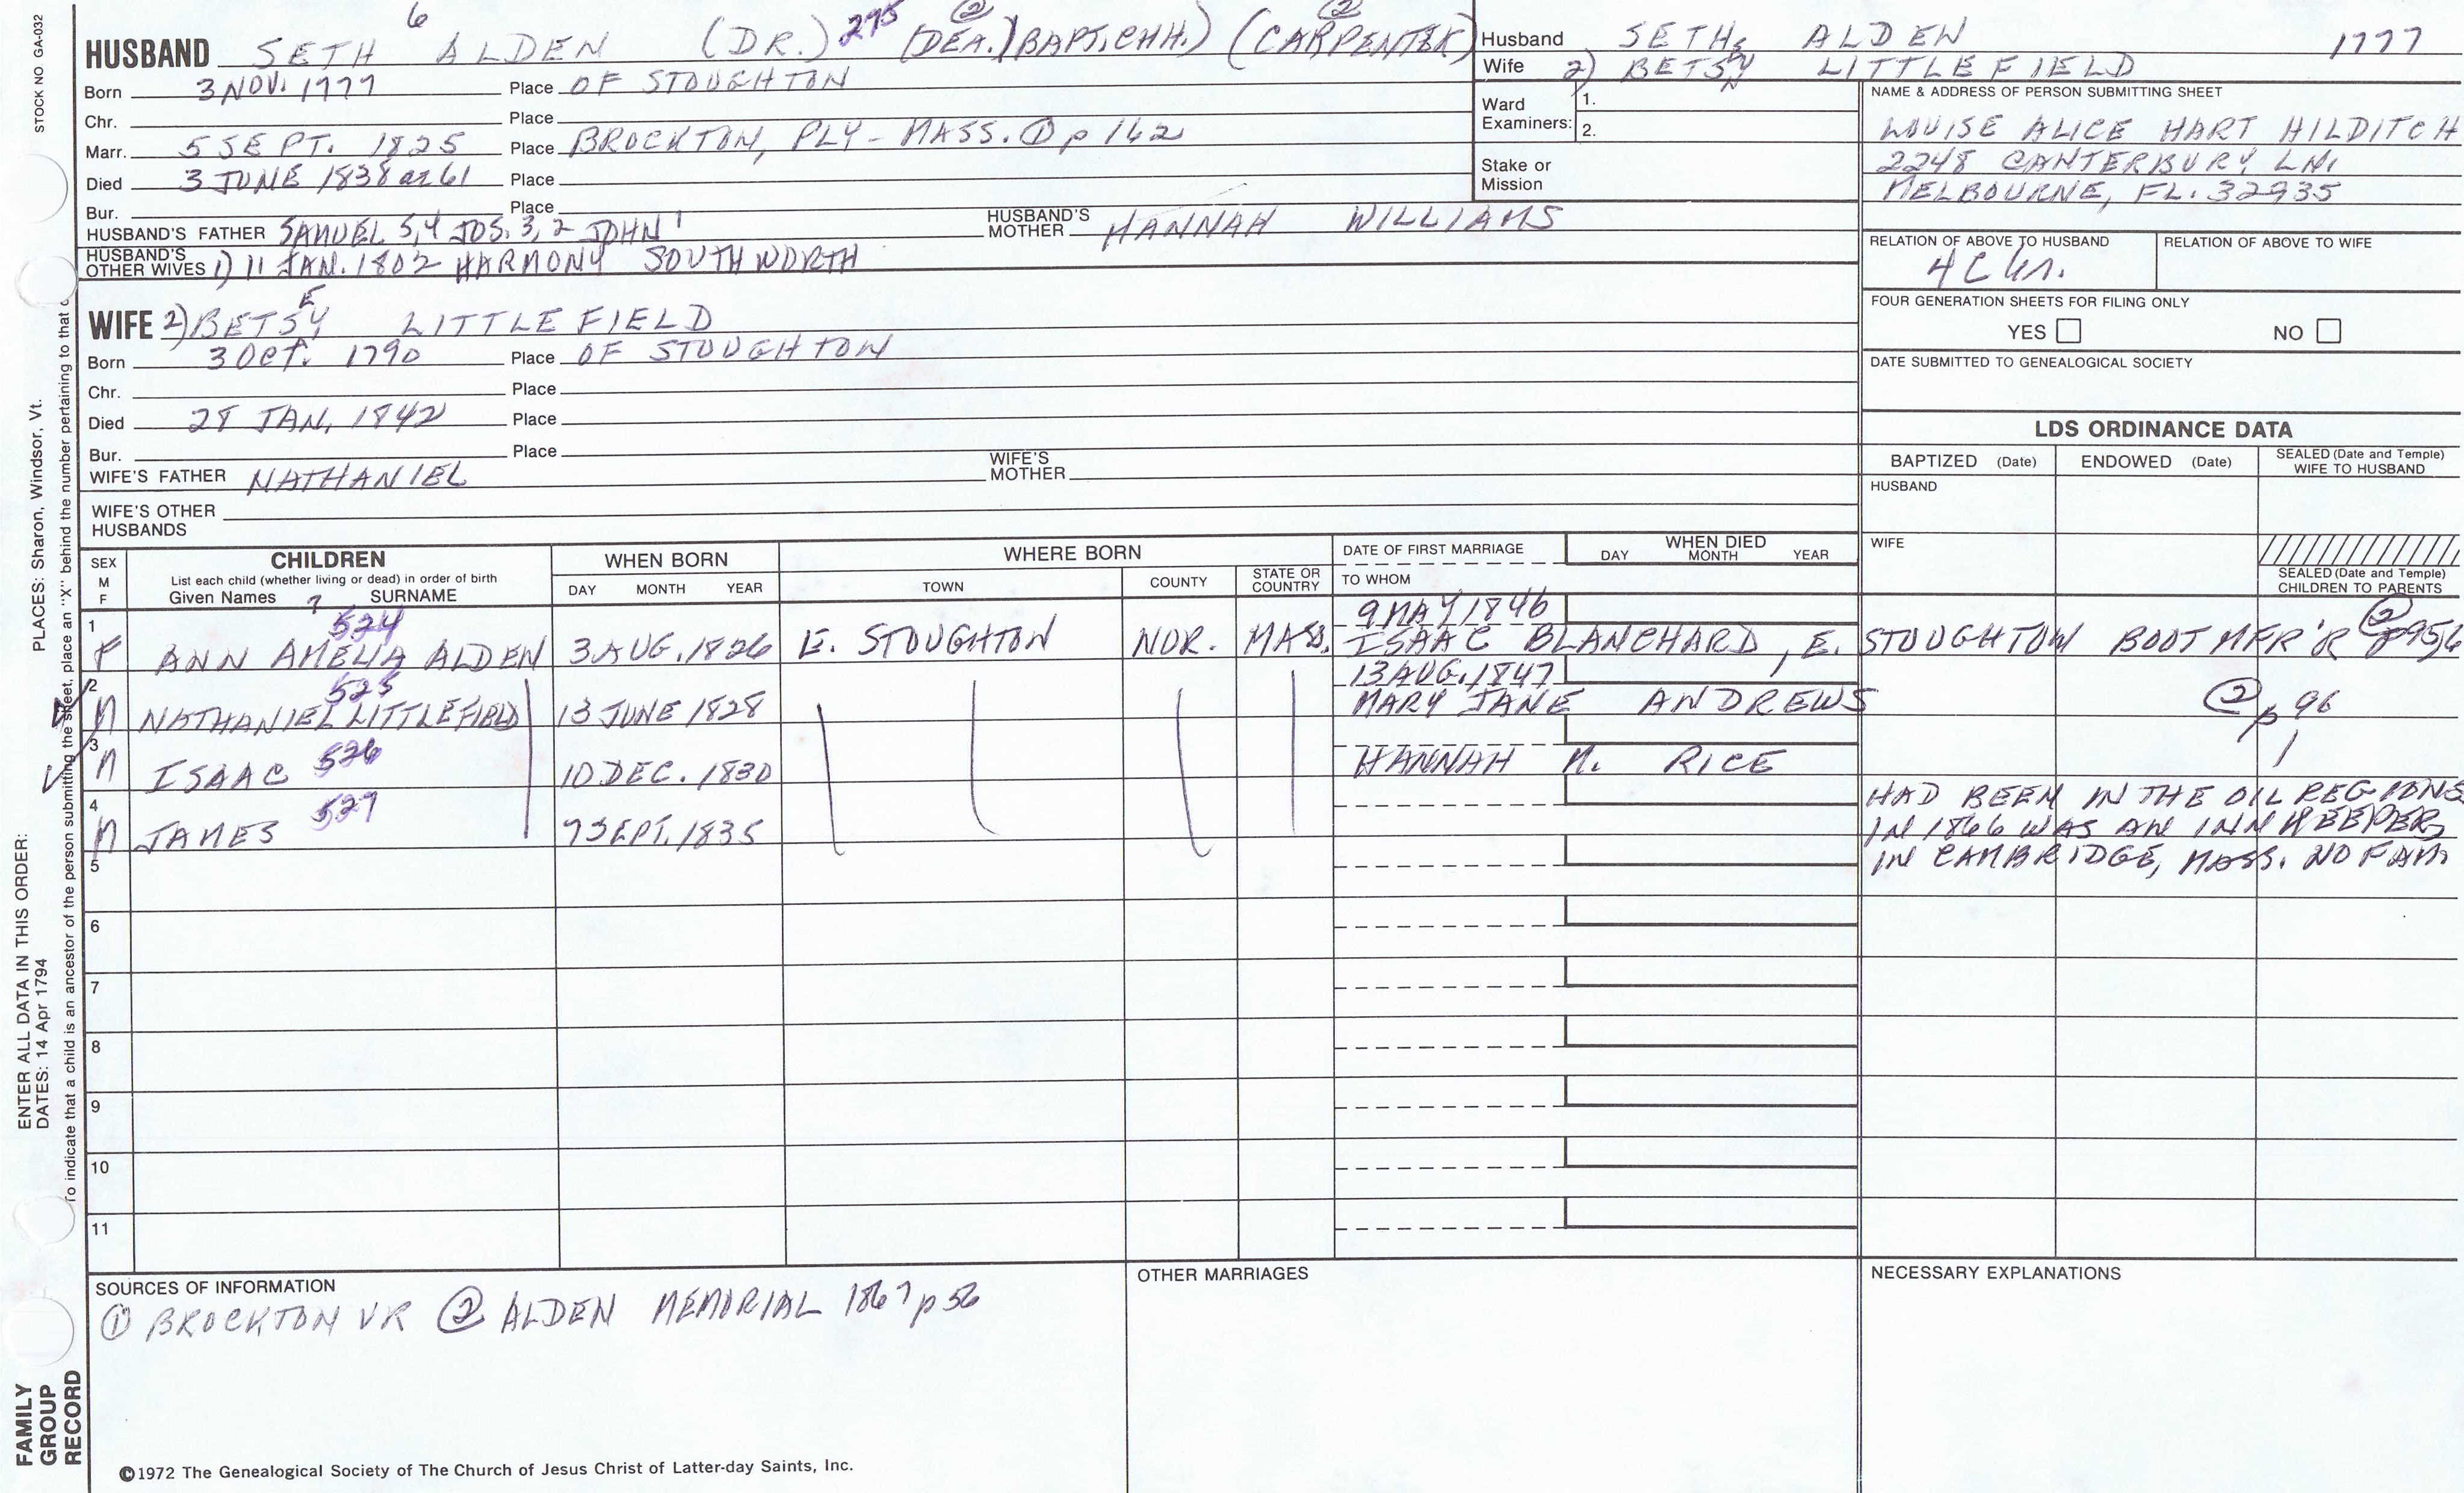 STOCK NO GA-032
PLACES: Sharon, Windsor, Vt.
ENTER ALL DATA IN THIS ORDER:
DATES: 14 Apr 1794
To indicate that a child is an ancestor of the person submitting the sheet, place an "X" behind the number pertaining to that c
FAMILY GROUP RECORD
HUSBAND SETH 6 ALDEN (DR.) 295 (DEA.) ② BAPT. CHH.) (CARPENTER) ②
Born 3 NOV. 1777 Place OF STOUGHTON
Chr. Place
Marr. 5 SEPT. 1825 Place BROCKTON, PLY - MASS. ① p 162
Died 3 JUNE 1838 ae 61 Place
Bur. Place
HUSBAND'S FATHER SAMUEL 5,4 JOS. 3,2 JOHN 1 HUSBAND'S MOTHER HANNAH WILLIAMS
HUSBAND'S OTHER WIVES 1) 11 JAN. 1802 HARMONY SOUTHWORTH
WIFE 2) BETSEY LITTLEFIELD
Born 3 Oct. 1790 Place OF STOUGHTON
Chr. Place
Died 28 JAN. 1842 Place
Bur. Place
WIFE'S FATHER NATHANIEL WIFE'S MOTHER
WIFE'S OTHER HUSBANDS
Husband SETH 6 ALDEN 1777
Wife 2) BETSY LITTLEFIELD
Ward Examiners: 1. 2.
Stake or Mission
NAME & ADDRESS OF PERSON SUBMITTING SHEET
LOUISE ALICE HART HILDITCH
2248 CANTERBURY LN.
MELBOURNE, FL. 32935
RELATION OF ABOVE TO HUSBAND RELATION OF ABOVE TO WIFE
4C
FOUR GENERATION SHEETS FOR FILING ONLY
YES NO
DATE SUBMITTED TO GENEALOGICAL SOCIETY
LDS ORDINANCE DATA
BAPTIZED (Date) ENDOWED (Date) SEALED (Date and Temple) WIFE TO HUSBAND
HUSBAND
WIFE
SEALED (Date and Temple) CHILDREN TO PARENTS
SEX M F CHILDREN List each child (whether living or dead) in order of birth Given Names SURNAME
WHEN BORN DAY MONTH YEAR
WHERE BORN TOWN COUNTY STATE OR COUNTRY
DATE OF FIRST MARRIAGE TO WHOM
WHEN DIED DAY MONTH YEAR
7 524 9 MAY 1846
1 F ANN AMELIA ALDEN 3 AUG. 1826 E. STOUGHTON NOR. MASS. ISAAC BLANCHARD, E. STOUGHTON BOOT MFR'R ② p 95,6
525 13 AUG. 1847
2 M NATHANIEL LITTLEFIELD 13 JUNE 1828 MARY JANE ANDREWS ② p 96
3 M ISAAC 526 10 DEC. 1830 HANNAH M. RICE
4 M JAMES 527 7 SEPT. 1835
HAD BEEN IN THE OIL REGIONS
IN 1866 WAS AN INN KEEPER,
IN CAMBRIDGE, MASS. NO FAM
5
6
7
8
9
10
11
SOURCES OF INFORMATION
① BROCKTON VR ② ALDEN MEMORIAL 1867 p 56
OTHER MARRIAGES
NECESSARY EXPLANATIONS
©1972 The Genealogical Society of The Church of Jesus Christ of Latter-day Saints, Inc.